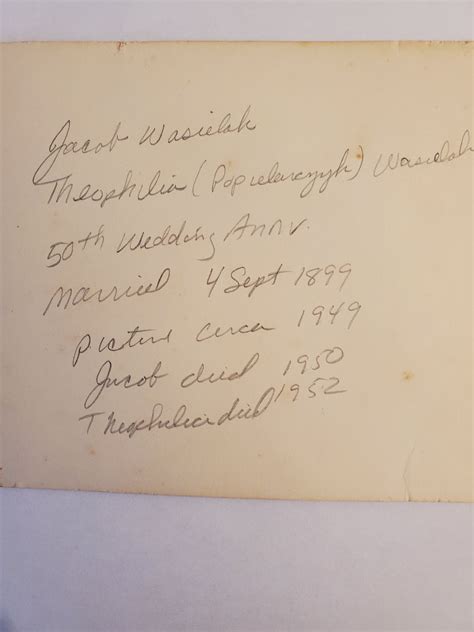 Jacob Wasielak
Theophilia (Popielarczyk) Wasielak
50th Wedding Annv.
Married 4 Sept 1899
Picture circa 1949
Jacob died 1950
Theophilia died 1952